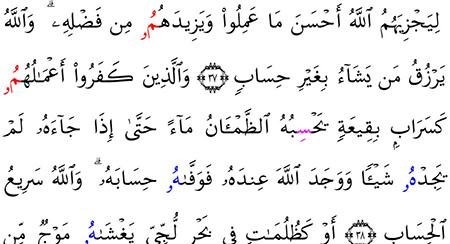 لِيَجْزِيَهُمُ ٱللَّهُ أَحْسَنَ مَا عَمِلُوا۟ وَيَزِيدَهُمُۥ مِن فَضْلِهِۦۗ وَٱللَّهُ
يَرْزُقُ مَن يَشَآءُ بِغَيْرِ حِسَابٍ ۝٣٧ وَٱلَّذِينَ كَفَرُوٓا۟ أَعْمَٰلُهُمُۥٓ
كَسَرَابِۭ بِقِيعَةٍ يَحْسِبُهُ ٱلظَّمْـَٔانُ مَآءً حَتَّىٰٓ إِذَا جَآءَهُۥ لَمْ
يَجِدْهُۥ شَيْـًٔا وَوَجَدَ ٱللَّهَ عِندَهُۥ فَوَفَّىٰهُۥ حِسَابَهُۥۗ وَٱللَّهُ سَرِيعُ
ٱلْحِسَابِ ۝٣٨ أَوْ كَظُلُمَٰتٍ فِى بَحْرٍ لُّجِّىٍّ يَغْشَىٰهُۥ مَوْجٌ مِّن